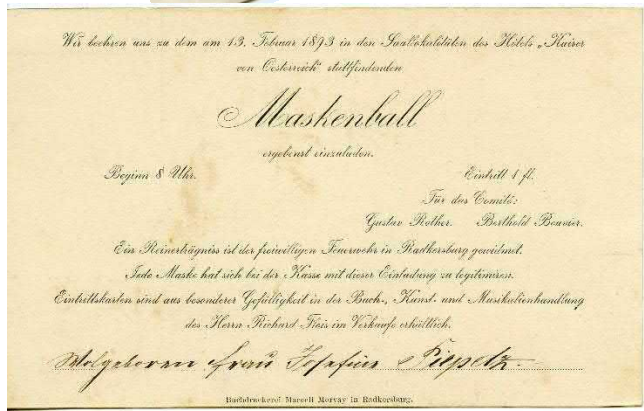 Wir beehren uns zu dem am 13. Februar 1893 in den Saallokalitäten des Hôtels „Kaiser
von Oesterreich“ stattfindenden
Maskenball
ergebenst einzuladen.
Beginn 8 Uhr.
Eintritt 1 fl.
Für das Comité:
Gustav Rother. Berthold Bouvier.
Ein Reinerträgniss ist der freiwilligen Feuerwehr in Radkersburg gewidmet.
Jede Maske hat sich bei der Kasse mit dieser Einladung zu legitimiren.
Eintrittskarten sind aus besonderer Gefälligkeit in der Buch-, Kunst- und Musikalienhandlung
des Herrn Richard im Verkaufe erhältlich.
Wolgeboren Frau Josefine
Buchdruckerei Marcell Morvay in Radkersburg.